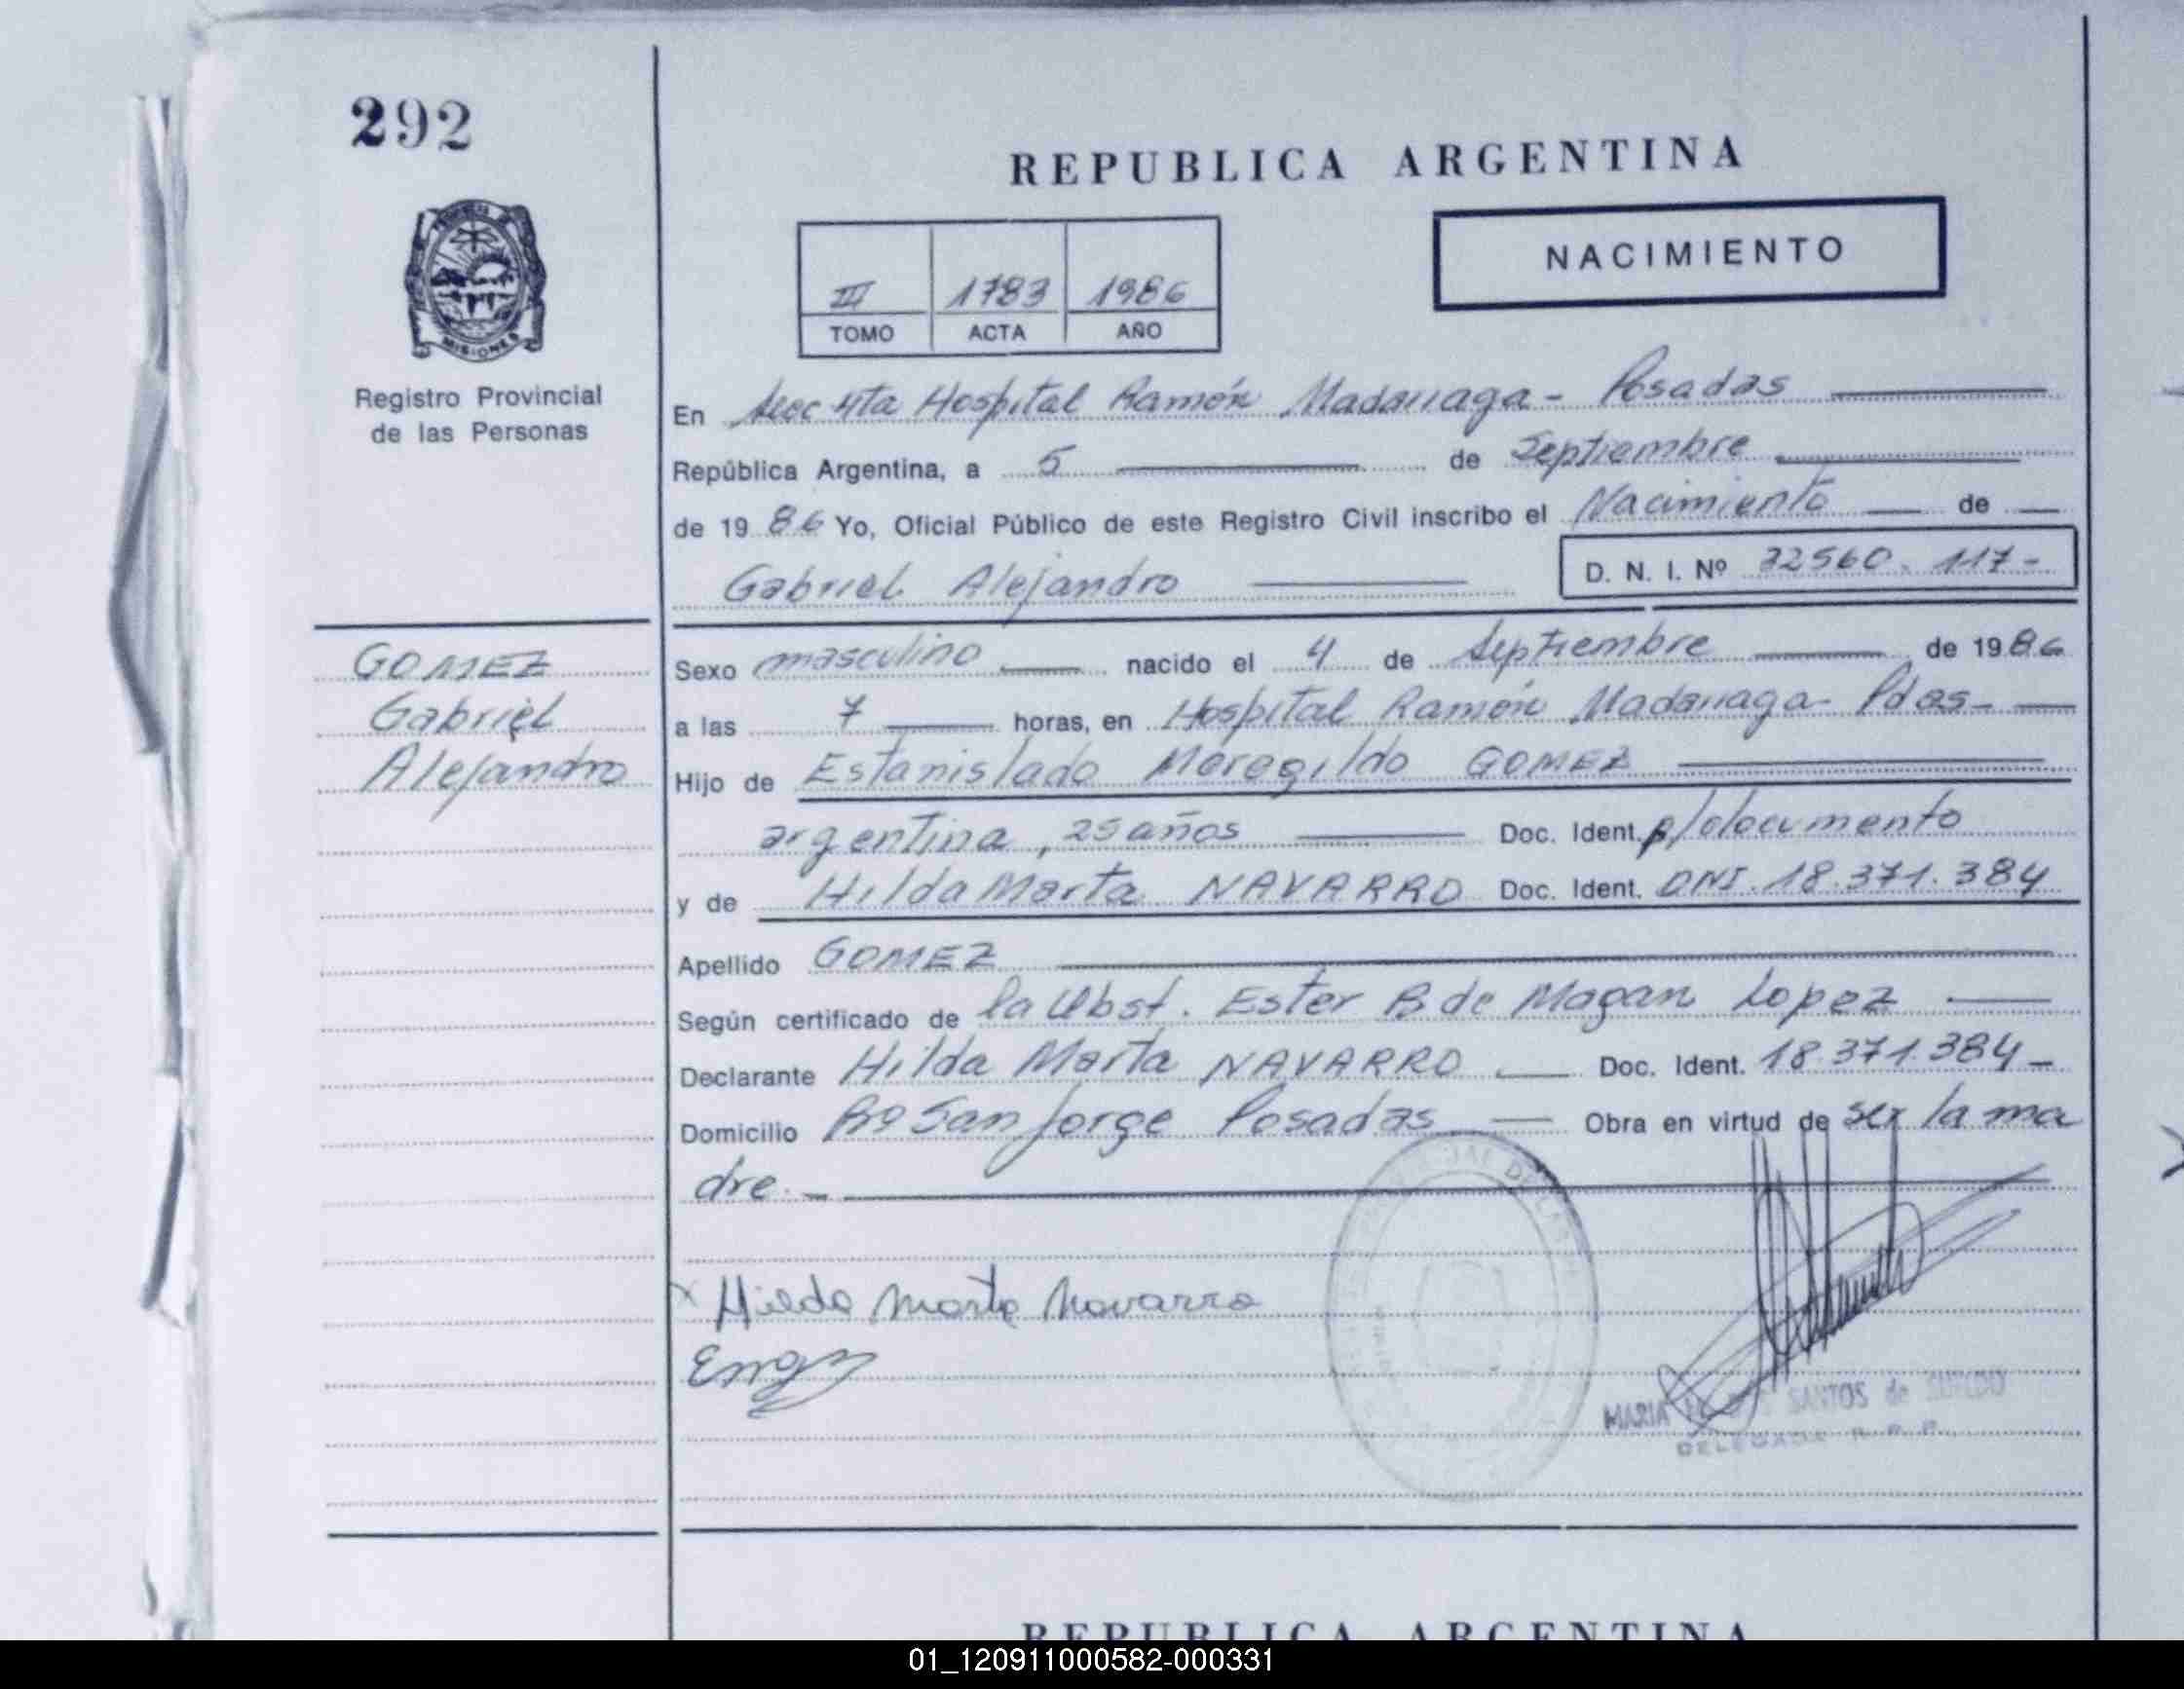 292
REPUBLICA ARGENTINA
NACIMIENTO
III 1783 1986
TOMO ACTA AÑO
MISIONES
Registro Provincial
de las Personas
En Secc 4ta Hospital Ramón Madariaga - Posadas
República Argentina, a 5 de Septiembre
de 1986 Yo, Oficial Público de este Registro Civil inscribo el Nacimiento de
Gabriel Alejandro
D. N. I. Nº 32560.117-
GOMEZ
Gabriel
Alejandro
Sexo masculino nacido el 4 de Septiembre de 1986
a las 7 horas, en Hospital Ramón Madariaga - Pdas-
Hijo de Estanislado Meregildo GOMEZ
argentina, 25 años Doc. Ident. p/documento
y de Hilda Marta NAVARRO Doc. Ident. DNI. 18.371.384
Apellido GOMEZ
Según certificado de la Obst. Ester B de Magan Lopez
Declarante Hilda Marta NAVARRO Doc. Ident. 18.371.384-
Domicilio Bº San Jorge Posadas Obra en virtud de ser la ma
dre.-
x Hilda Marta Navarro
MARIA SANTOS de
DELEGADA R. P. P.
REPUBLICA ARGENTINA
01_120911000582-000331